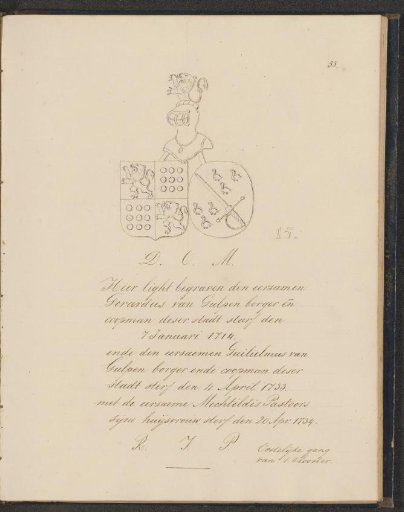 53.
15.
D. O. M.
Hier light begraven den eersamen
Gerardus van Gulpen borger en
coopman deser stadt sterf den
7 Januari 1714.
ende den eersaemen Guilielmus van
Gulpen borger ende coopman deser
stadt sterf den 4 April 1733.
met de eersame Mechteldis Pastoors
syne huijsvrouw sterf den 20 Apr. 1734.
R. I. P.
Oostelijke gang
van 't klooster